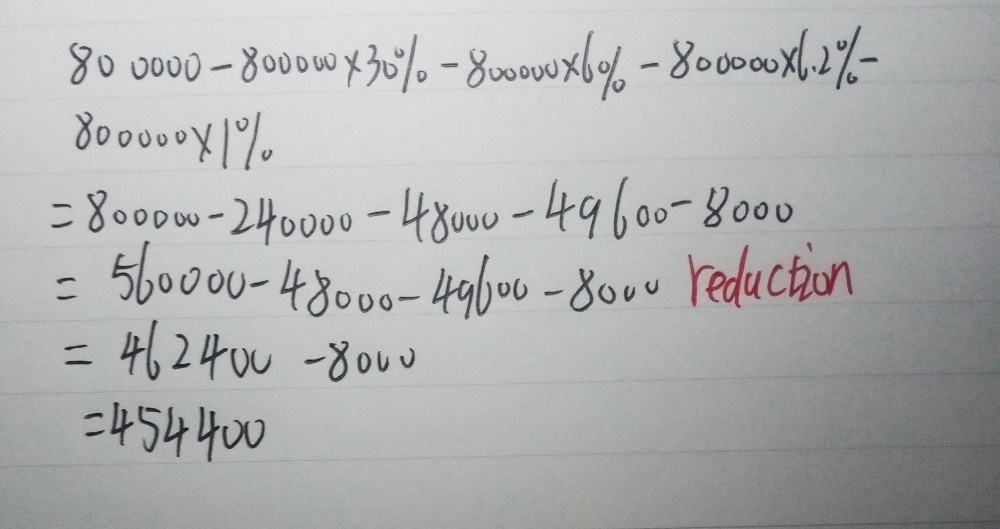 800000-800000×30%-800000×6%-800000×6.2%-
800000×1%
=800000-240000-48000-49600-8000
=560000-48000-49600-8000 reduction
=462400-8000
=454400